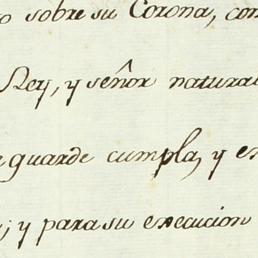 sobre su Corona, con
Rey, y señor natura
guarde cumpla, y e
y para su execucion